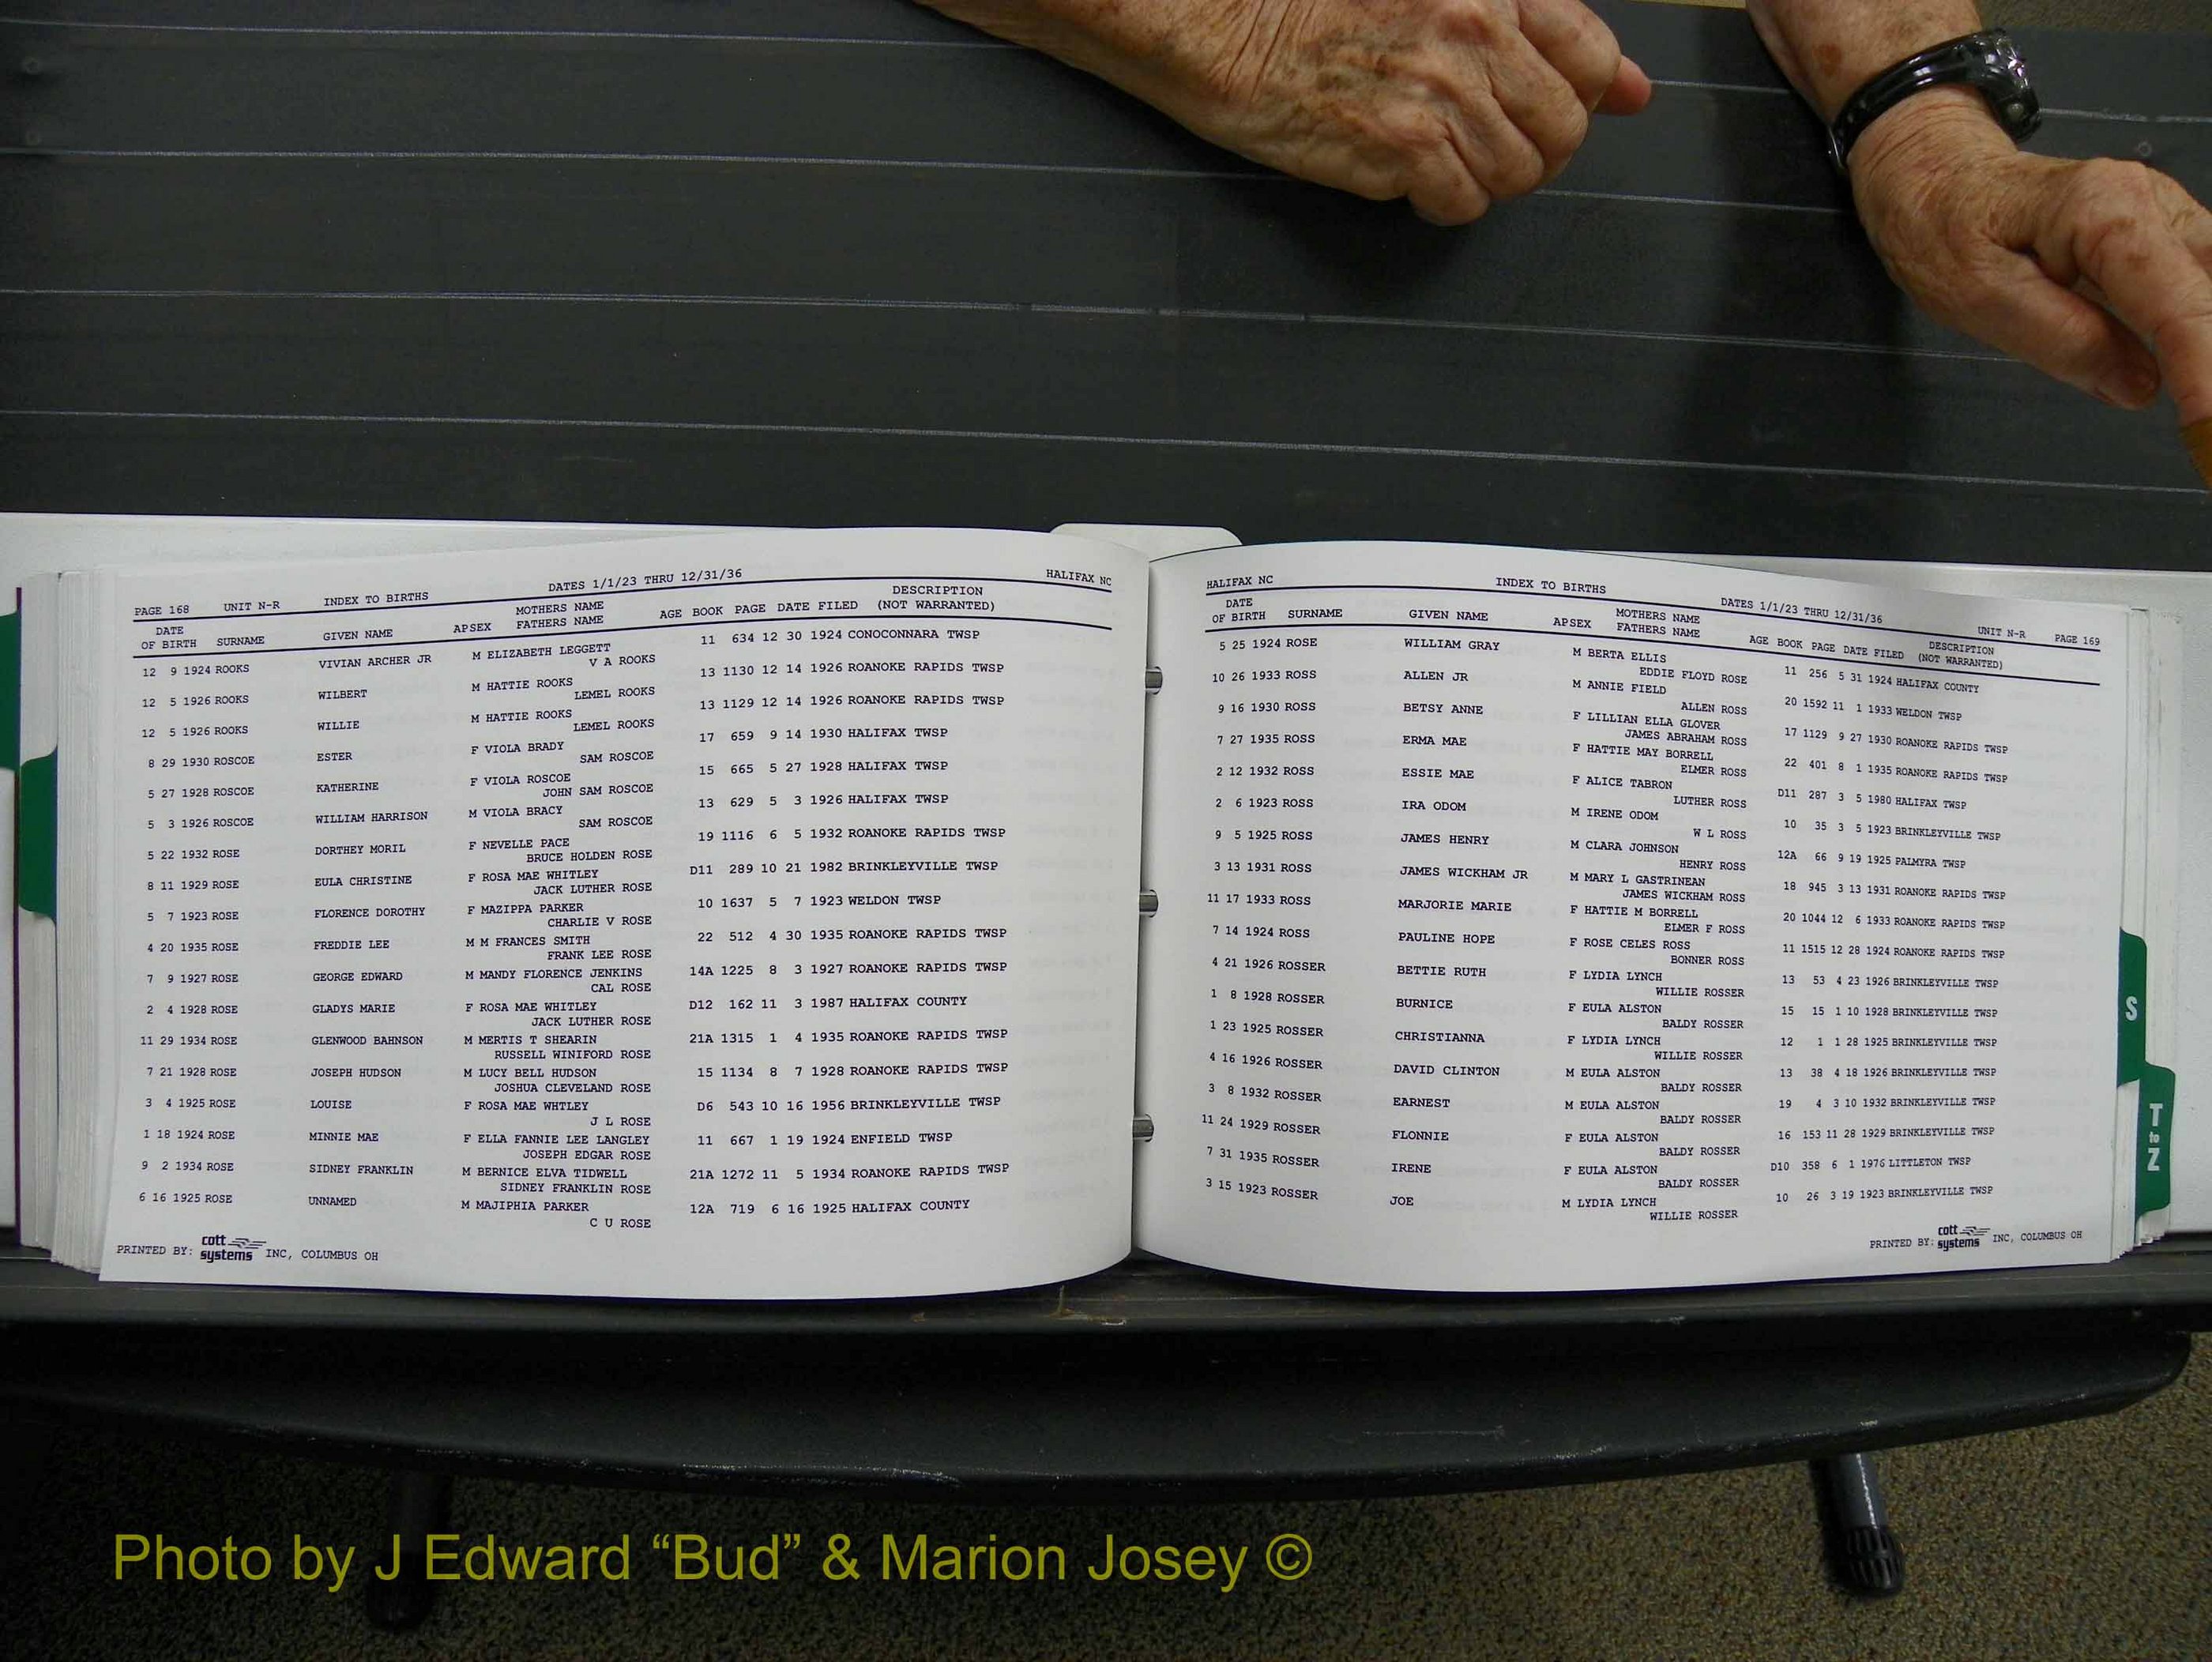 PAGE 168 UNIT N-R INDEX TO BIRTHS DATES 1/1/23 THRU 12/31/36 HALIFAX NC
DATE OF BIRTH SURNAME GIVEN NAME APSEX MOTHERS NAME FATHERS NAME AGE BOOK PAGE DATE FILED DESCRIPTION (NOT WARRANTED)
12 9 1924 ROOKS VIVIAN ARCHER JR M ELIZABETH LEGGETT 11 634 12 30 1924 CONOCONNARA TWSP
V A ROOKS
12 5 1926 ROOKS WILBERT M HATTIE ROOKS 13 1130 12 14 1926 ROANOKE RAPIDS TWSP
LEMEL ROOKS
12 5 1926 ROOKS WILLIE M HATTIE ROOKS 13 1129 12 14 1926 ROANOKE RAPIDS TWSP
LEMEL ROOKS
8 29 1930 ROSCOE ESTER F VIOLA BRADY 17 659 9 14 1930 HALIFAX TWSP
SAM ROSCOE
5 27 1928 ROSCOE KATHERINE F VIOLA ROSCOE 15 665 5 27 1928 HALIFAX TWSP
JOHN SAM ROSCOE
5 3 1926 ROSCOE WILLIAM HARRISON M VIOLA BRACY 13 629 5 3 1926 HALIFAX TWSP
SAM ROSCOE
5 22 1932 ROSE DORTHEY MORIL F NEVELLE PACE 19 1116 6 5 1932 ROANOKE RAPIDS TWSP
BRUCE HOLDEN ROSE
8 11 1929 ROSE EULA CHRISTINE F ROSA MAE WHITLEY D11 289 10 21 1982 BRINKLEYVILLE TWSP
JACK LUTHER ROSE
5 7 1923 ROSE FLORENCE DOROTHY F MAZIPPA PARKER 10 1637 5 7 1923 WELDON TWSP
CHARLIE V ROSE
4 20 1935 ROSE FREDDIE LEE M M FRANCES SMITH 22 512 4 30 1935 ROANOKE RAPIDS TWSP
FRANK LEE ROSE
7 9 1927 ROSE GEORGE EDWARD M MANDY FLORENCE JENKINS 14A 1225 8 3 1927 ROANOKE RAPIDS TWSP
CAL ROSE
2 4 1928 ROSE GLADYS MARIE F ROSA MAE WHITLEY D12 162 11 3 1987 HALIFAX COUNTY
JACK LUTHER ROSE
11 29 1934 ROSE GLENWOOD BAHNSON M MERTIS T SHEARIN 21A 1315 1 4 1935 ROANOKE RAPIDS TWSP
RUSSELL WINIFORD ROSE
7 21 1928 ROSE JOSEPH HUDSON M LUCY BELL HUDSON 15 1134 8 7 1928 ROANOKE RAPIDS TWSP
JOSHUA CLEVELAND ROSE
3 4 1925 ROSE LOUISE F ROSA MAE WHTLEY D6 543 10 16 1956 BRINKLEYVILLE TWSP
J L ROSE
1 18 1924 ROSE MINNIE MAE F ELLA FANNIE LEE LANGLEY 11 667 1 19 1924 ENFIELD TWSP
JOSEPH EDGAR ROSE
9 2 1934 ROSE SIDNEY FRANKLIN M BERNICE ELVA TIDWELL 21A 1272 11 5 1934 ROANOKE RAPIDS TWSP
SIDNEY FRANKLIN ROSE
6 16 1925 ROSE UNNAMED M MAJIPHIA PARKER 12A 719 6 16 1925 HALIFAX COUNTY
C U ROSE
PRINTED BY: cott systems INC, COLUMBUS OH
HALIFAX NC INDEX TO BIRTHS DATES 1/1/23 THRU 12/31/36 UNIT N-R PAGE 169
DATE OF BIRTH SURNAME GIVEN NAME APSEX MOTHERS NAME FATHERS NAME AGE BOOK PAGE DATE FILED DESCRIPTION (NOT WARRANTED)
5 25 1924 ROSE WILLIAM GRAY M BERTA ELLIS 11 256 5 31 1924 HALIFAX COUNTY
EDDIE FLOYD ROSE
10 26 1933 ROSS ALLEN JR M ANNIE FIELD 20 1592 11 1 1933 WELDON TWSP
ALLEN ROSS
9 16 1930 ROSS BETSY ANNE F LILLIAN ELLA GLOVER 17 1129 9 27 1930 ROANOKE RAPIDS TWSP
JAMES ABRAHAM ROSS
7 27 1935 ROSS ERMA MAE F HATTIE MAY BORRELL 22 401 8 1 1935 ROANOKE RAPIDS TWSP
ELMER ROSS
2 12 1932 ROSS ESSIE MAE F ALICE TABRON D11 287 3 5 1980 HALIFAX TWSP
LUTHER ROSS
2 6 1923 ROSS IRA ODOM M IRENE ODOM 10 35 3 5 1923 BRINKLEYVILLE TWSP
W L ROSS
9 5 1925 ROSS JAMES HENRY M CLARA JOHNSON 12A 66 9 19 1925 PALMYRA TWSP
HENRY ROSS
3 13 1931 ROSS JAMES WICKHAM JR M MARY L GASTRINEAN 18 945 3 13 1931 ROANOKE RAPIDS TWSP
JAMES WICKHAM ROSS
11 17 1933 ROSS MARJORIE MARIE F HATTIE M BORRELL 20 1044 12 6 1933 ROANOKE RAPIDS TWSP
ELMER F ROSS
7 14 1924 ROSS PAULINE HOPE F ROSE CELES ROSS 11 1515 12 28 1924 ROANOKE RAPIDS TWSP
BONNER ROSS
4 21 1926 ROSSER BETTIE RUTH F LYDIA LYNCH 13 53 4 23 1926 BRINKLEYVILLE TWSP
WILLIE ROSSER
1 8 1928 ROSSER BURNICE F EULA ALSTON 15 15 1 10 1928 BRINKLEYVILLE TWSP
BALDY ROSSER
1 23 1925 ROSSER CHRISTIANNA F LYDIA LYNCH 12 1 1 28 1925 BRINKLEYVILLE TWSP
WILLIE ROSSER
4 16 1926 ROSSER DAVID CLINTON M EULA ALSTON 13 38 4 18 1926 BRINKLEYVILLE TWSP
BALDY ROSSER
3 8 1932 ROSSER EARNEST M EULA ALSTON 19 4 3 10 1932 BRINKLEYVILLE TWSP
BALDY ROSSER
11 24 1929 ROSSER FLONNIE F EULA ALSTON 16 153 11 28 1929 BRINKLEYVILLE TWSP
BALDY ROSSER
7 31 1935 ROSSER IRENE F EULA ALSTON D10 358 6 1 1976 LITTLETON TWSP
BALDY ROSSER
3 15 1923 ROSSER JOE M LYDIA LYNCH 10 26 3 19 1923 BRINKLEYVILLE TWSP
WILLIE ROSSER
PRINTED BY: cott systems INC, COLUMBUS OH
S
T to Z
Photo by J Edward “Bud” & Marion Josey ©